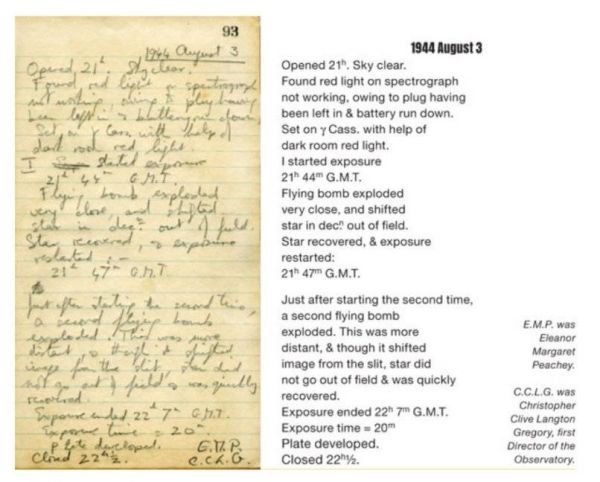 93
1944 August 3
Opened 21ʰ. Sky clear.
Found red light on spectrograph
not working, owing to plug having
been left in & battery run down.
Set on γ Cass. with help of
dark room red light.
I started exposure
21ʰ 44ᵐ G.M.T.
Flying bomb exploded
very close, and shifted
star in decⁿ out of field.
Star recovered, & exposure
restarted :-
21ʰ 47ᵐ G.M.T.
Just after starting the second time,
a second flying bomb
exploded. This was more
distant, & though it shifted
image from the slit, star did
not go out of field & was quickly
recovered.
Exposure ended 22ʰ 7ᵐ G.M.T.
Exposure time = 20ᵐ
Plate developed. E.M.P.
Closed 22ʰ½. C.C.L.G.
1944 August 3
Opened 21ʰ. Sky clear.
Found red light on spectrograph
not working, owing to plug having
been left in & battery run down.
Set on γ Cass. with help of
dark room red light.
I started exposure
21ʰ 44ᵐ G.M.T.
Flying bomb exploded
very close, and shifted
star in decⁿ out of field.
Star recovered, & exposure
restarted:
21ʰ 47ᵐ G.M.T.
Just after starting the second time,
a second flying bomb
exploded. This was more
distant, & though it shifted
image from the slit, star did
not go out of field & was quickly
recovered.
Exposure ended 22ʰ 7ᵐ G.M.T.
Exposure time = 20ᵐ
Plate developed.
Closed 22ʰ½.
E.M.P. was
Eleanor
Margaret
Peachey.
C.C.L.G. was
Christopher
Clive Langton
Gregory, first
Director of the
Observatory.